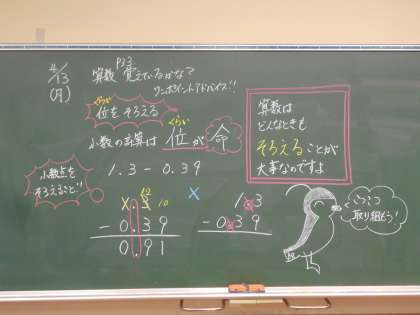 4/13
(月)
算数 P33 覚えているかな?
ワンポイントアドバイス!!
くらい
位をそろえる
くらい
小数の計算は 位が命
1.3 - 0.39
小数点を
そろえること!!
12
10
- 0.39
0.91
×
1.3
- 0.39
算数は
どんなときも
そろえることが
大事なのですよ
こつこつ
取り組もう!